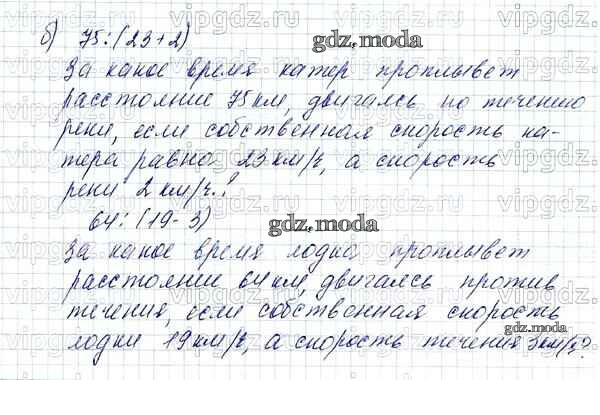 б) 75:(23+2)
За какое время катер проплывет
расстояние 75 км, двигаясь по течению
реки, если собственная скорость ка-
тера равна 23 км/ч, а скорость
реки 2 км/ч.?
64: (19-3)
За какое время лодка проплывет
расстоянии 64 км, двигаясь против
течения, если собственная скорость
лодки 19 км/ч, а скорость течения 3 км/ч?
gdz.moda
gdz.moda
gdz.moda
vipgdz.com